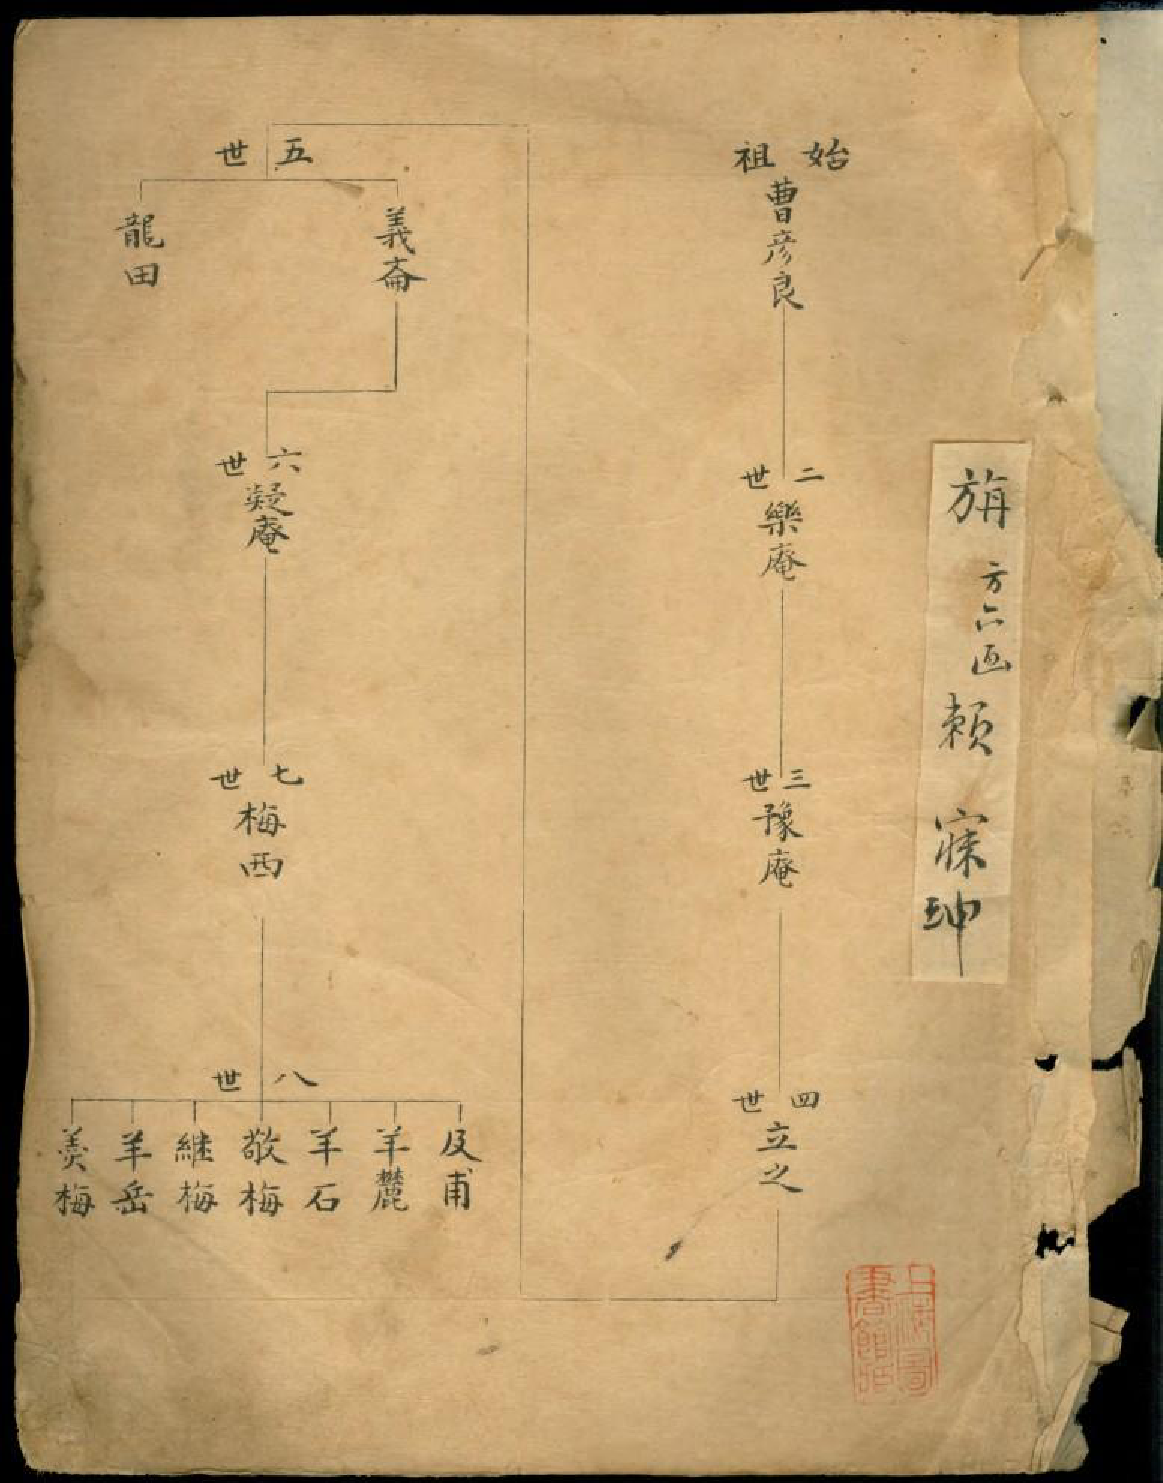 旃 方六画 賴 寐 珅
始祖
曹彦良
二世
樂庵
三世
豫庵
四世
立之
五世
義崙
龍田
六世
凝庵
七世
梅西
八世
及甫
羊麓
羊石
敬梅
継梅
羊岳
羹梅
上海圖
書館藏